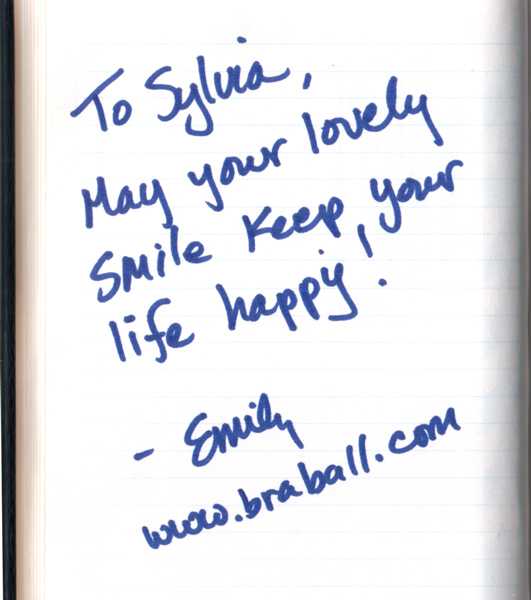 To Sylvia,
May your lovely
smile keep your
life happy!
- Emily
www.braball.com